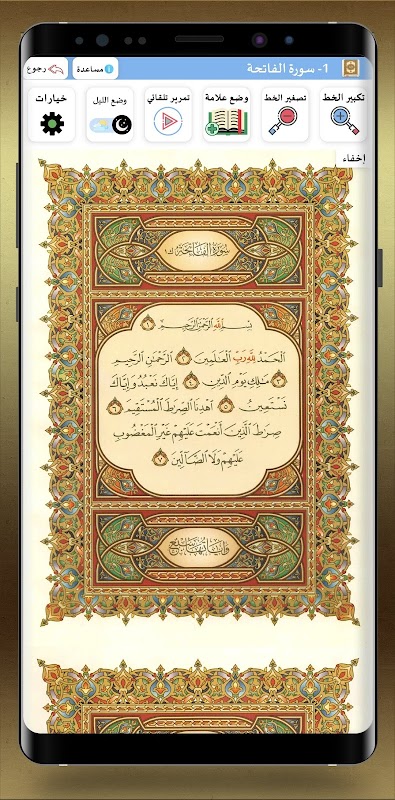 1- سورة الفاتحة
مساعدة
رجوع
تكبير الخط
تصغير الخط
وضع علامة
تمرير تلقائي
وضع الليل
خيارات
إخفاء
سُورَةُ الفَاتِحَةِ
بِسْمِ اللَّهِ الرَّحْمَٰنِ الرَّحِيمِ ١
الْحَمْدُ لِلَّهِ رَبِّ الْعَالَمِينَ ٢ الرَّحْمَٰنِ الرَّحِيمِ
٣ مَالِكِ يَوْمِ الدِّينِ ٤ إِيَّاكَ نَعْبُدُ وَإِيَّاكَ
نَسْتَعِينُ ٥ اهْدِنَا الصِّرَاطَ الْمُسْتَقِيمَ ٦
صِرَاطَ الَّذِينَ أَنْعَمْتَ عَلَيْهِمْ غَيْرِ الْمَغْضُوبِ
عَلَيْهِمْ وَلَا الضَّالِّينَ ٧
وَآيَاتُهَا سَبْعٌ